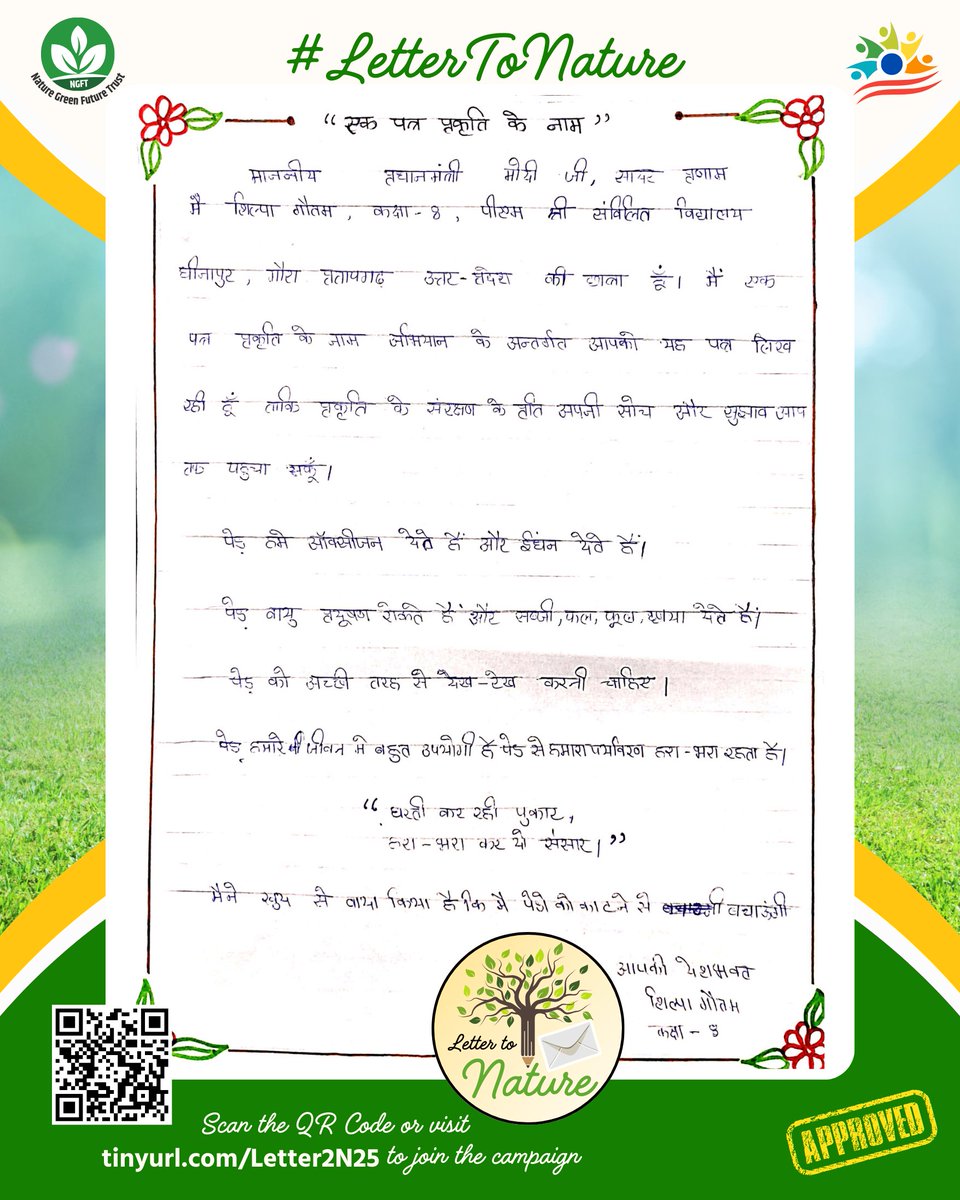 #LetterToNature
NGFT
Nature Green Future Trust
“ एक पत्र प्रकृति के नाम ”
माननीय प्रधानमंत्री मोदी जी, सादर प्रणाम
मै शिल्पा गौतम, कक्षा-8, पीएम श्री संविलित विद्यालय
धीनापुर, गौरा प्रतापगढ़ उत्तर-प्रदेश की छात्रा हूँ। मैं एक
पत्र प्रकृति के नाम अभियान के अन्तर्गत आपको यह पत्र लिख
रही हूँ ताकि प्रकृति के संरक्षण के प्रति अपनी सोच और सुझाव आप
तक पहुचा सकूँ।
पेड़ हमे ऑक्सीजन देते हैं और ईधंन देते हैं।
पेड़ वायु प्रदूषण रोकते हैं और सब्जी, फल, फूल, छाया देते हैं।
पेड़ को अच्छी तरह से देख-रेख करनी चाहिए।
पेड़ हमारे जीवन मे बहुत उपयोगी हैं पेड़ से हमारा पर्यावरण हरा-भरा रहता हैं।
“ धरती कर रही पुकार,
हरा-भरा कर दो संसार। ”
मैने खुद से वादा किया है कि मै पेड़ो को काटने से बचाउंगी
आपकी देशभक्त
शिल्पा गौतम
कक्षा - 8
Letter to
Nature
Scan the QR Code or visit
tinyurl.com/Letter2N25 to join the campaign
APPROVED